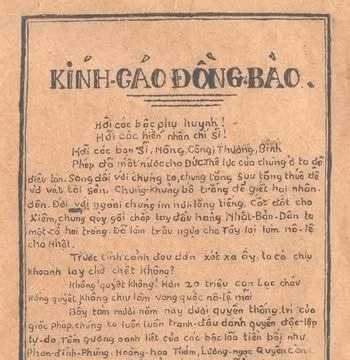 KÍNH-CÁO ĐỒNG-BÀO.
Hỡi các bậc phụ huynh!
Hỡi các hiền nhân chí sĩ!
Hỡi các bạn Sĩ, Nông, Công, Thương, Binh
Pháp đã mất nước cho Đức. Thế lực của chúng ở ta đã
điêu tàn. Song đối với chúng ta, chúng tăng sưu tăng thuế để
vơ vét tài sản. Chúng khủng bố trắng để giết hại nhân-
dân. Đối với ngoài chúng im nói lặng tiếng, Cắt đất cho
Xiêm, chung quy gối chắp tay đầu hàng Nhật-Bản. Dân ta
một cổ hai tròng. Đã làm trâu ngựa cho Tây lại làm nô-lệ
cho Nhật.
Trước tình cảnh đau đớn xót xa ấy, ta có chịu
khoanh tay chờ chết không?
Không! quyết không! Hơn 20 triệu con Lạc cháu
Hồng quyết không chịu làm vong quốc nô-lệ mãi
Bẩy tám mươi năm nay dưới quyền thống trị của
giặc Pháp, chúng ta luôn luôn tranh-đấu dành quyền độc-lập
tự-do. Tấm gương oanh liệt của các bậc lão tiền bối như
Phan-đình-Phùng, Hoàng-hoa Thám, Lương-ngọc Quyến còn